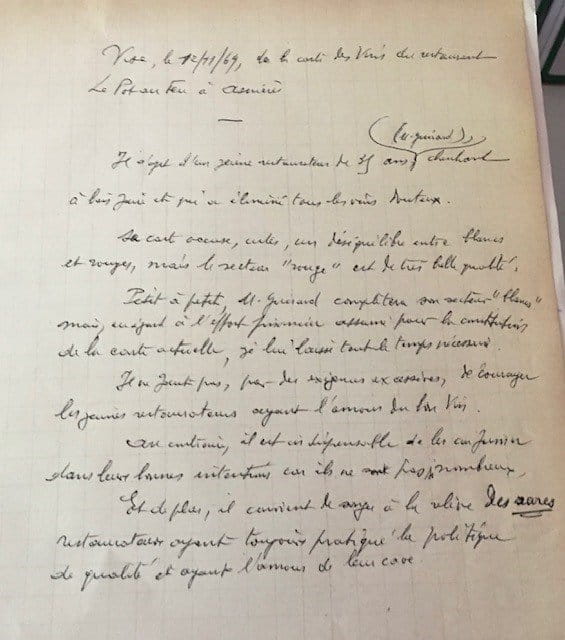 Vu, le 12/11/69, de la carte des Vins du restaurant
Le Pot au Feu à Asnières
—
(M. Guérard)
Il s'agit d'un jeune restaurateur de 35 ans, cherchant
à bien faire et qui a éliminé tous les vins douteux.
Sa carte accuse, certes, un déséquilibre entre blancs
et rouges, mais le secteur "rouge" est de très belle qualité.
Petit à petit, M. Guérard complètera son secteur "blancs"
mais, eu égard à l'effort financier assumé pour la constitution
de la carte actuelle, je lui laisse tout le temps nécessaire.
Il ne faut pas, par des exigences excessives, décourager
les jeunes restaurateurs ayant l'amour du bon Vin.
Au contraire, il est indispensable de les confirmer
dans leurs bonnes intentions car ils ne sont pas nombreux.
Et de plus, il convient de songer à la relève des rares
restaurateurs ayant toujours pratiqué la politique
de qualité et ayant l'amour de leur cave.